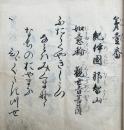 第壹番
紀伊國 那智山
如意輪 觀世音菩薩
ふだらくやきしうつ
なみはみくまのゝ
なちのおやまに
ひゞくたきつせ